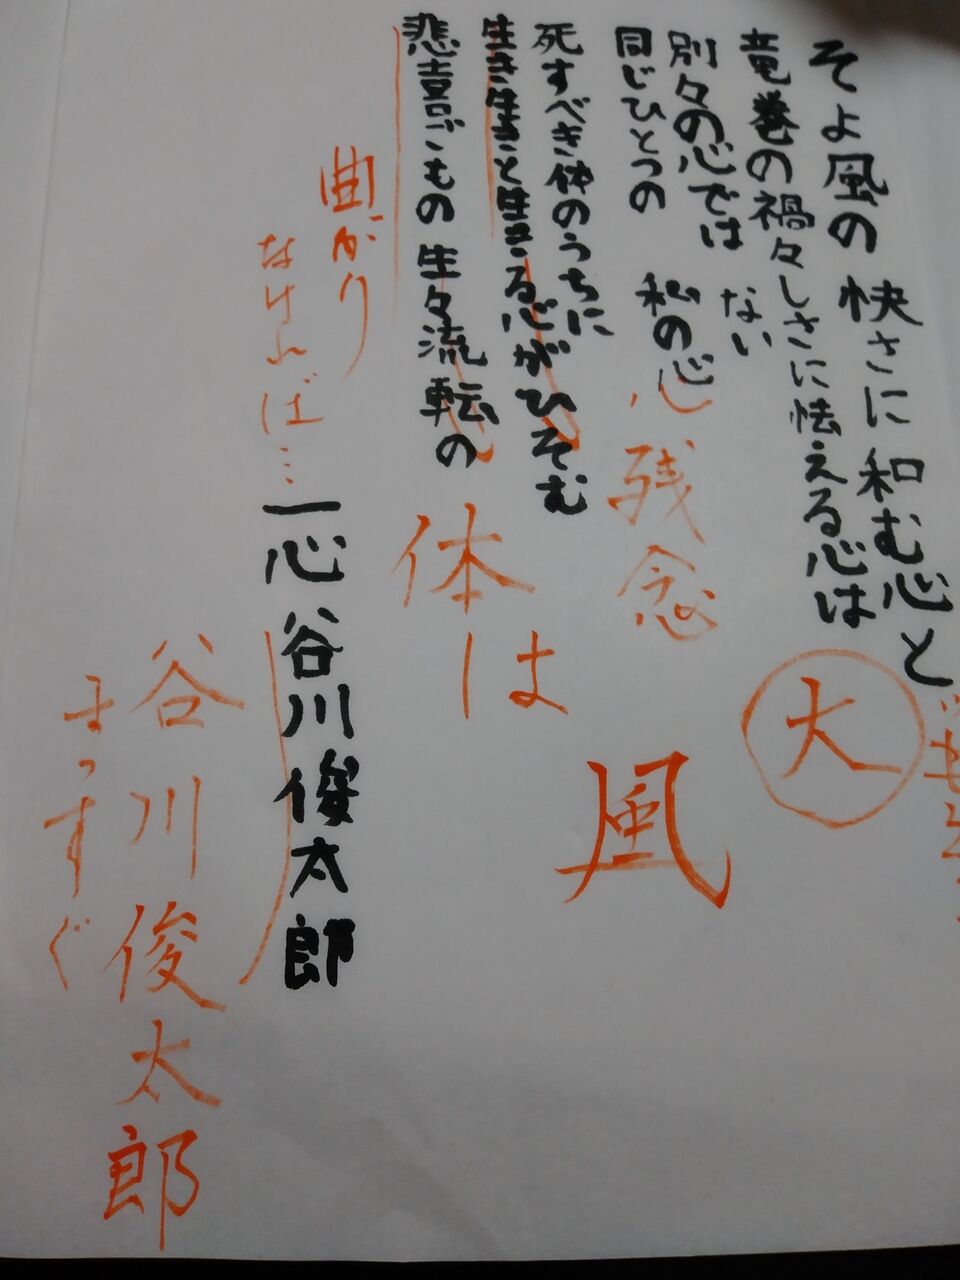 そよ風の快さに和む心と
竜巻の禍々しさに怯える心は
別々の心ではない
同じひとつの私の心
死すべき体のうちに
生き生きと生きる心がひそむ
悲喜こもごもの生々流転の
一心 谷川俊太郎
大
風
心残念
体は
曲がり
なければ…
谷川俊太郎
まっすぐ